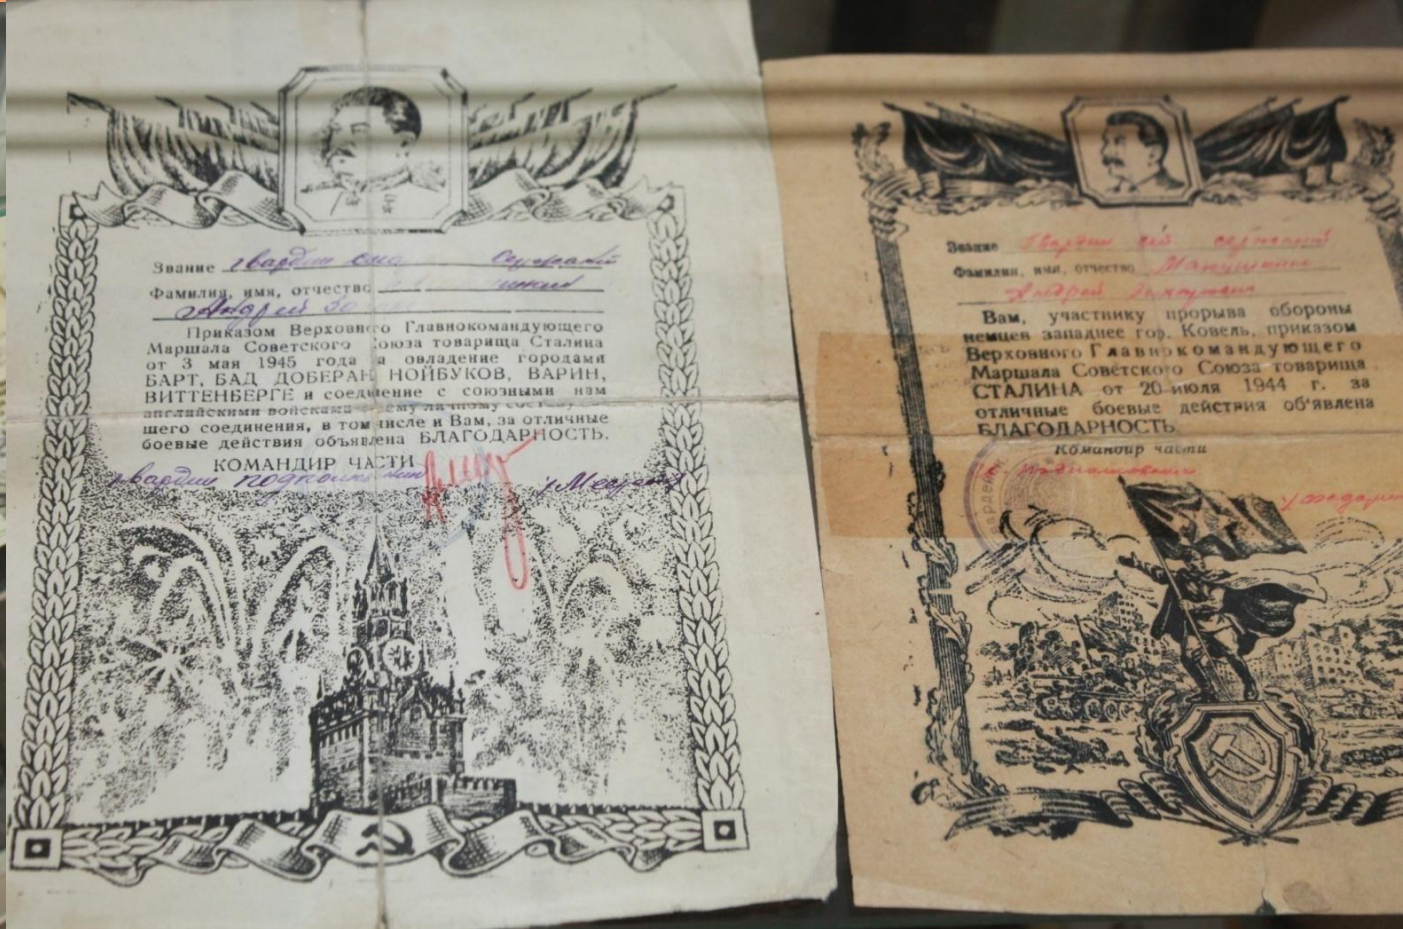 Звание гвардии
Фамилия, имя, отчество
Андрей
Приказом Верховного Главнокомандующего
Маршала Советского Союза товарища Сталина
от 3 мая 1945 года за овладение городами
БАРТ, БАД ДОБЕРАН, НОЙБУКОВ, ВАРИН,
ВИТТЕНБЕРГЕ и соединение с союзными нам
английскими войсками всему личному составу
шего соединения, в том числе и Вам, за отличные
боевые действия объявлена БЛАГОДАРНОСТЬ.
КОМАНДИР ЧАСТИ
гвардии
Звание Гвардии сержант
Фамилия, имя, отчество Манушкин
Андрей
Вам, участнику прорыва обороны
немцев западнее гор. Ковель, приказом
Верховного Главнокомандующего
Маршала Советского Союза товарища
СТАЛИНА от 20 июля 1944 г. за
отличные боевые действия об'явлена
БЛАГОДАРНОСТЬ.
Командир части